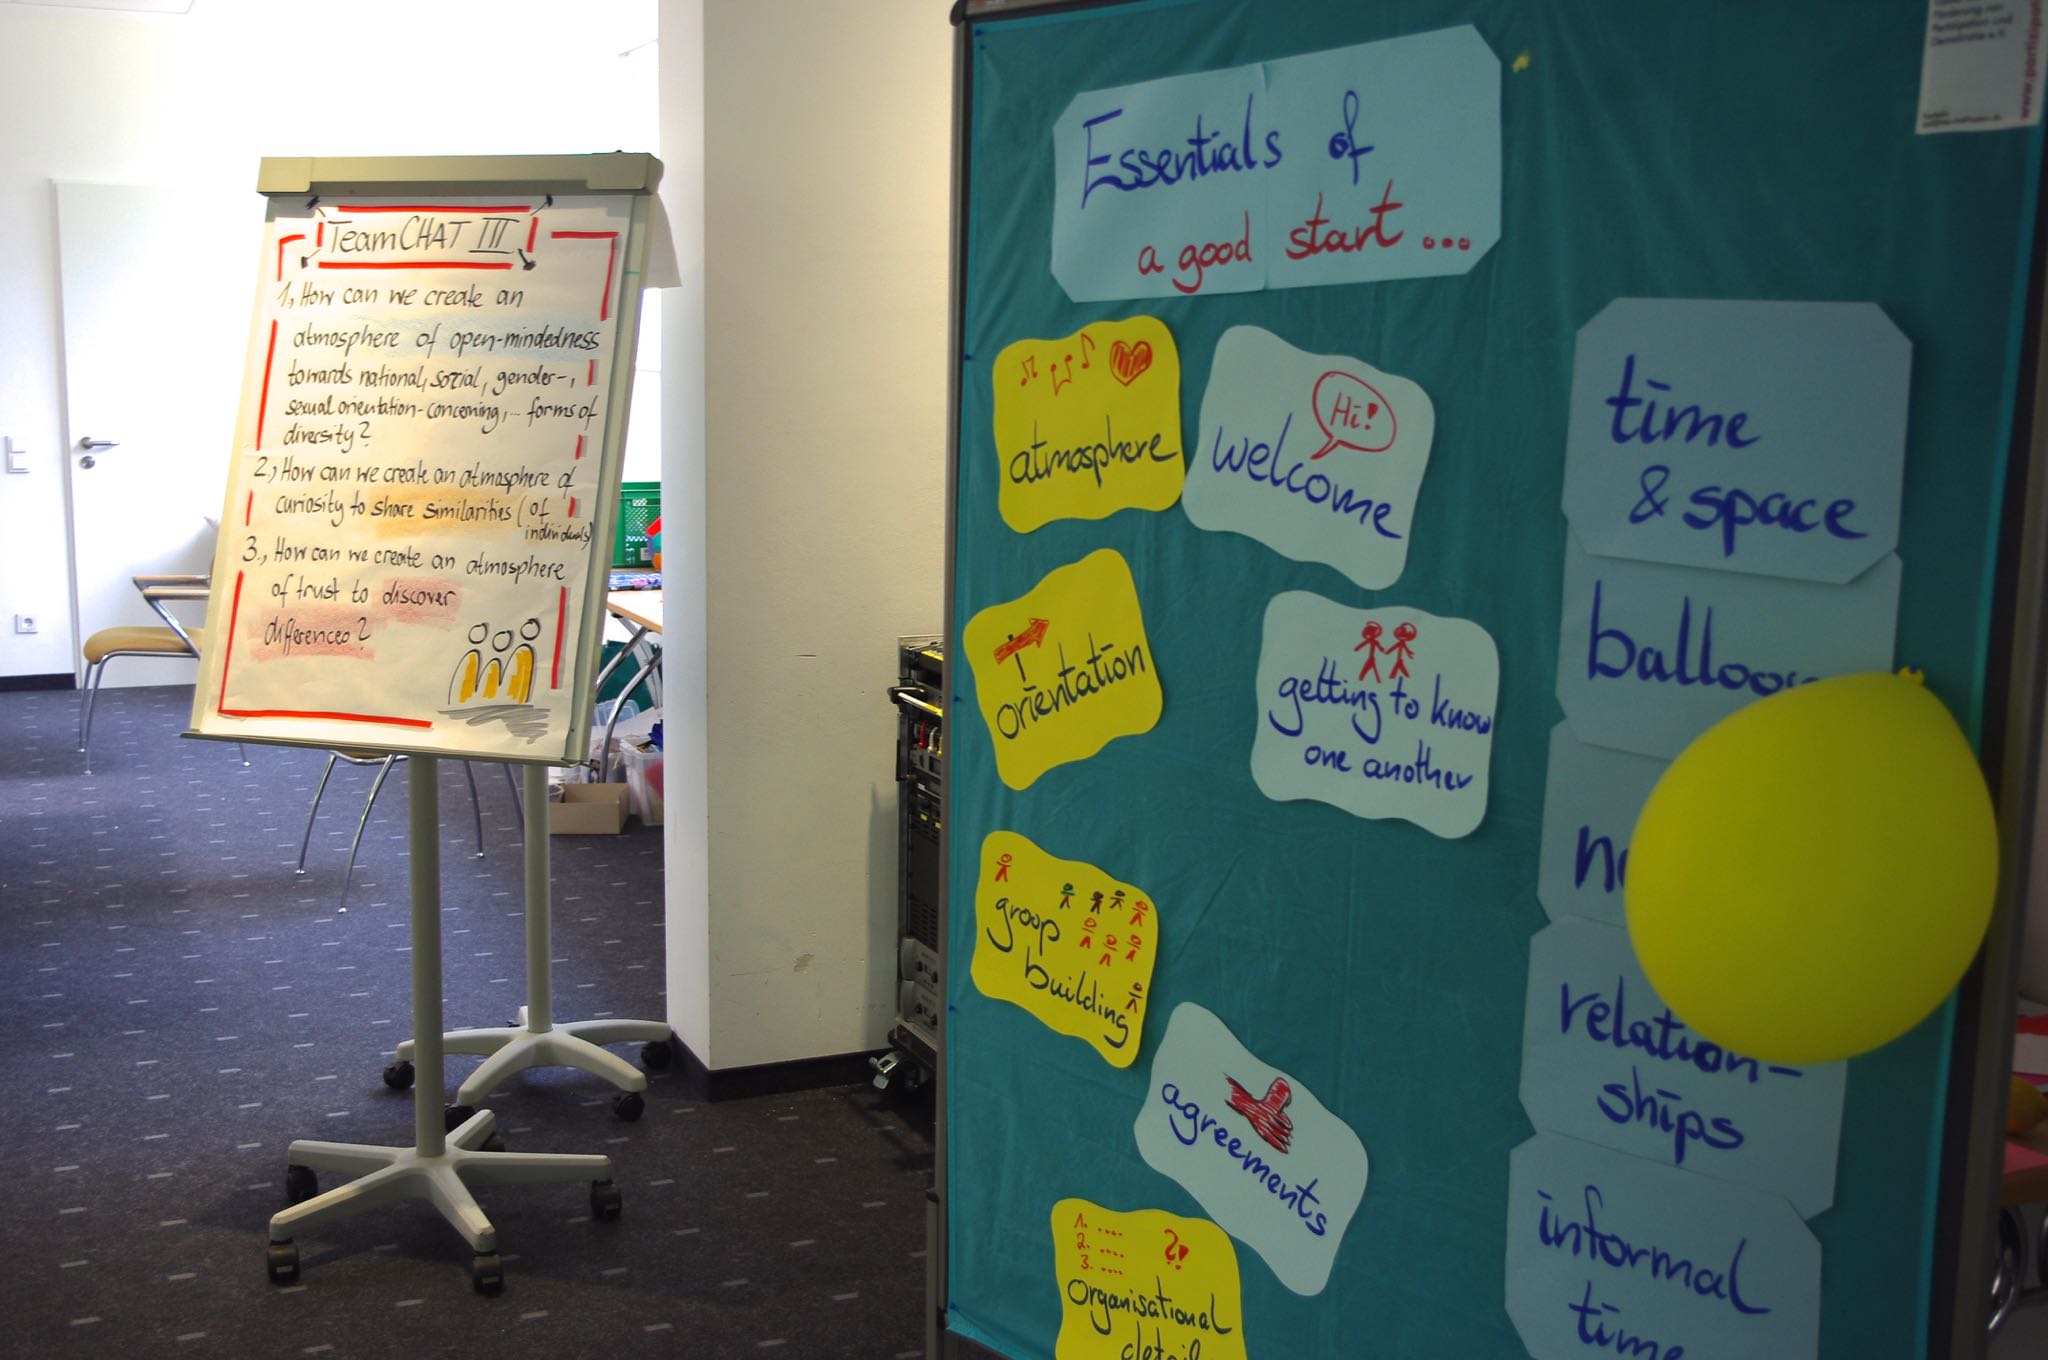 TeamCHAT III
1., How can we create an
atmosphere of open-mindedness
towards national, social, gender-,
sexual orientation-concerning, ... forms of
diversity?
2., How can we create an atmosphere of
curiosity to share similarities (of
individuals)
3., How can we create an atmosphere
of trust to discover
differences?
Essentials of
a good start ...
atmosphere
Hi!
welcome
orientation
getting to know
one another
group
building
agreements
1. ....
2. ....
3. ....
?!
Organisational
detail
time
& space
relation-
ships
informal
time